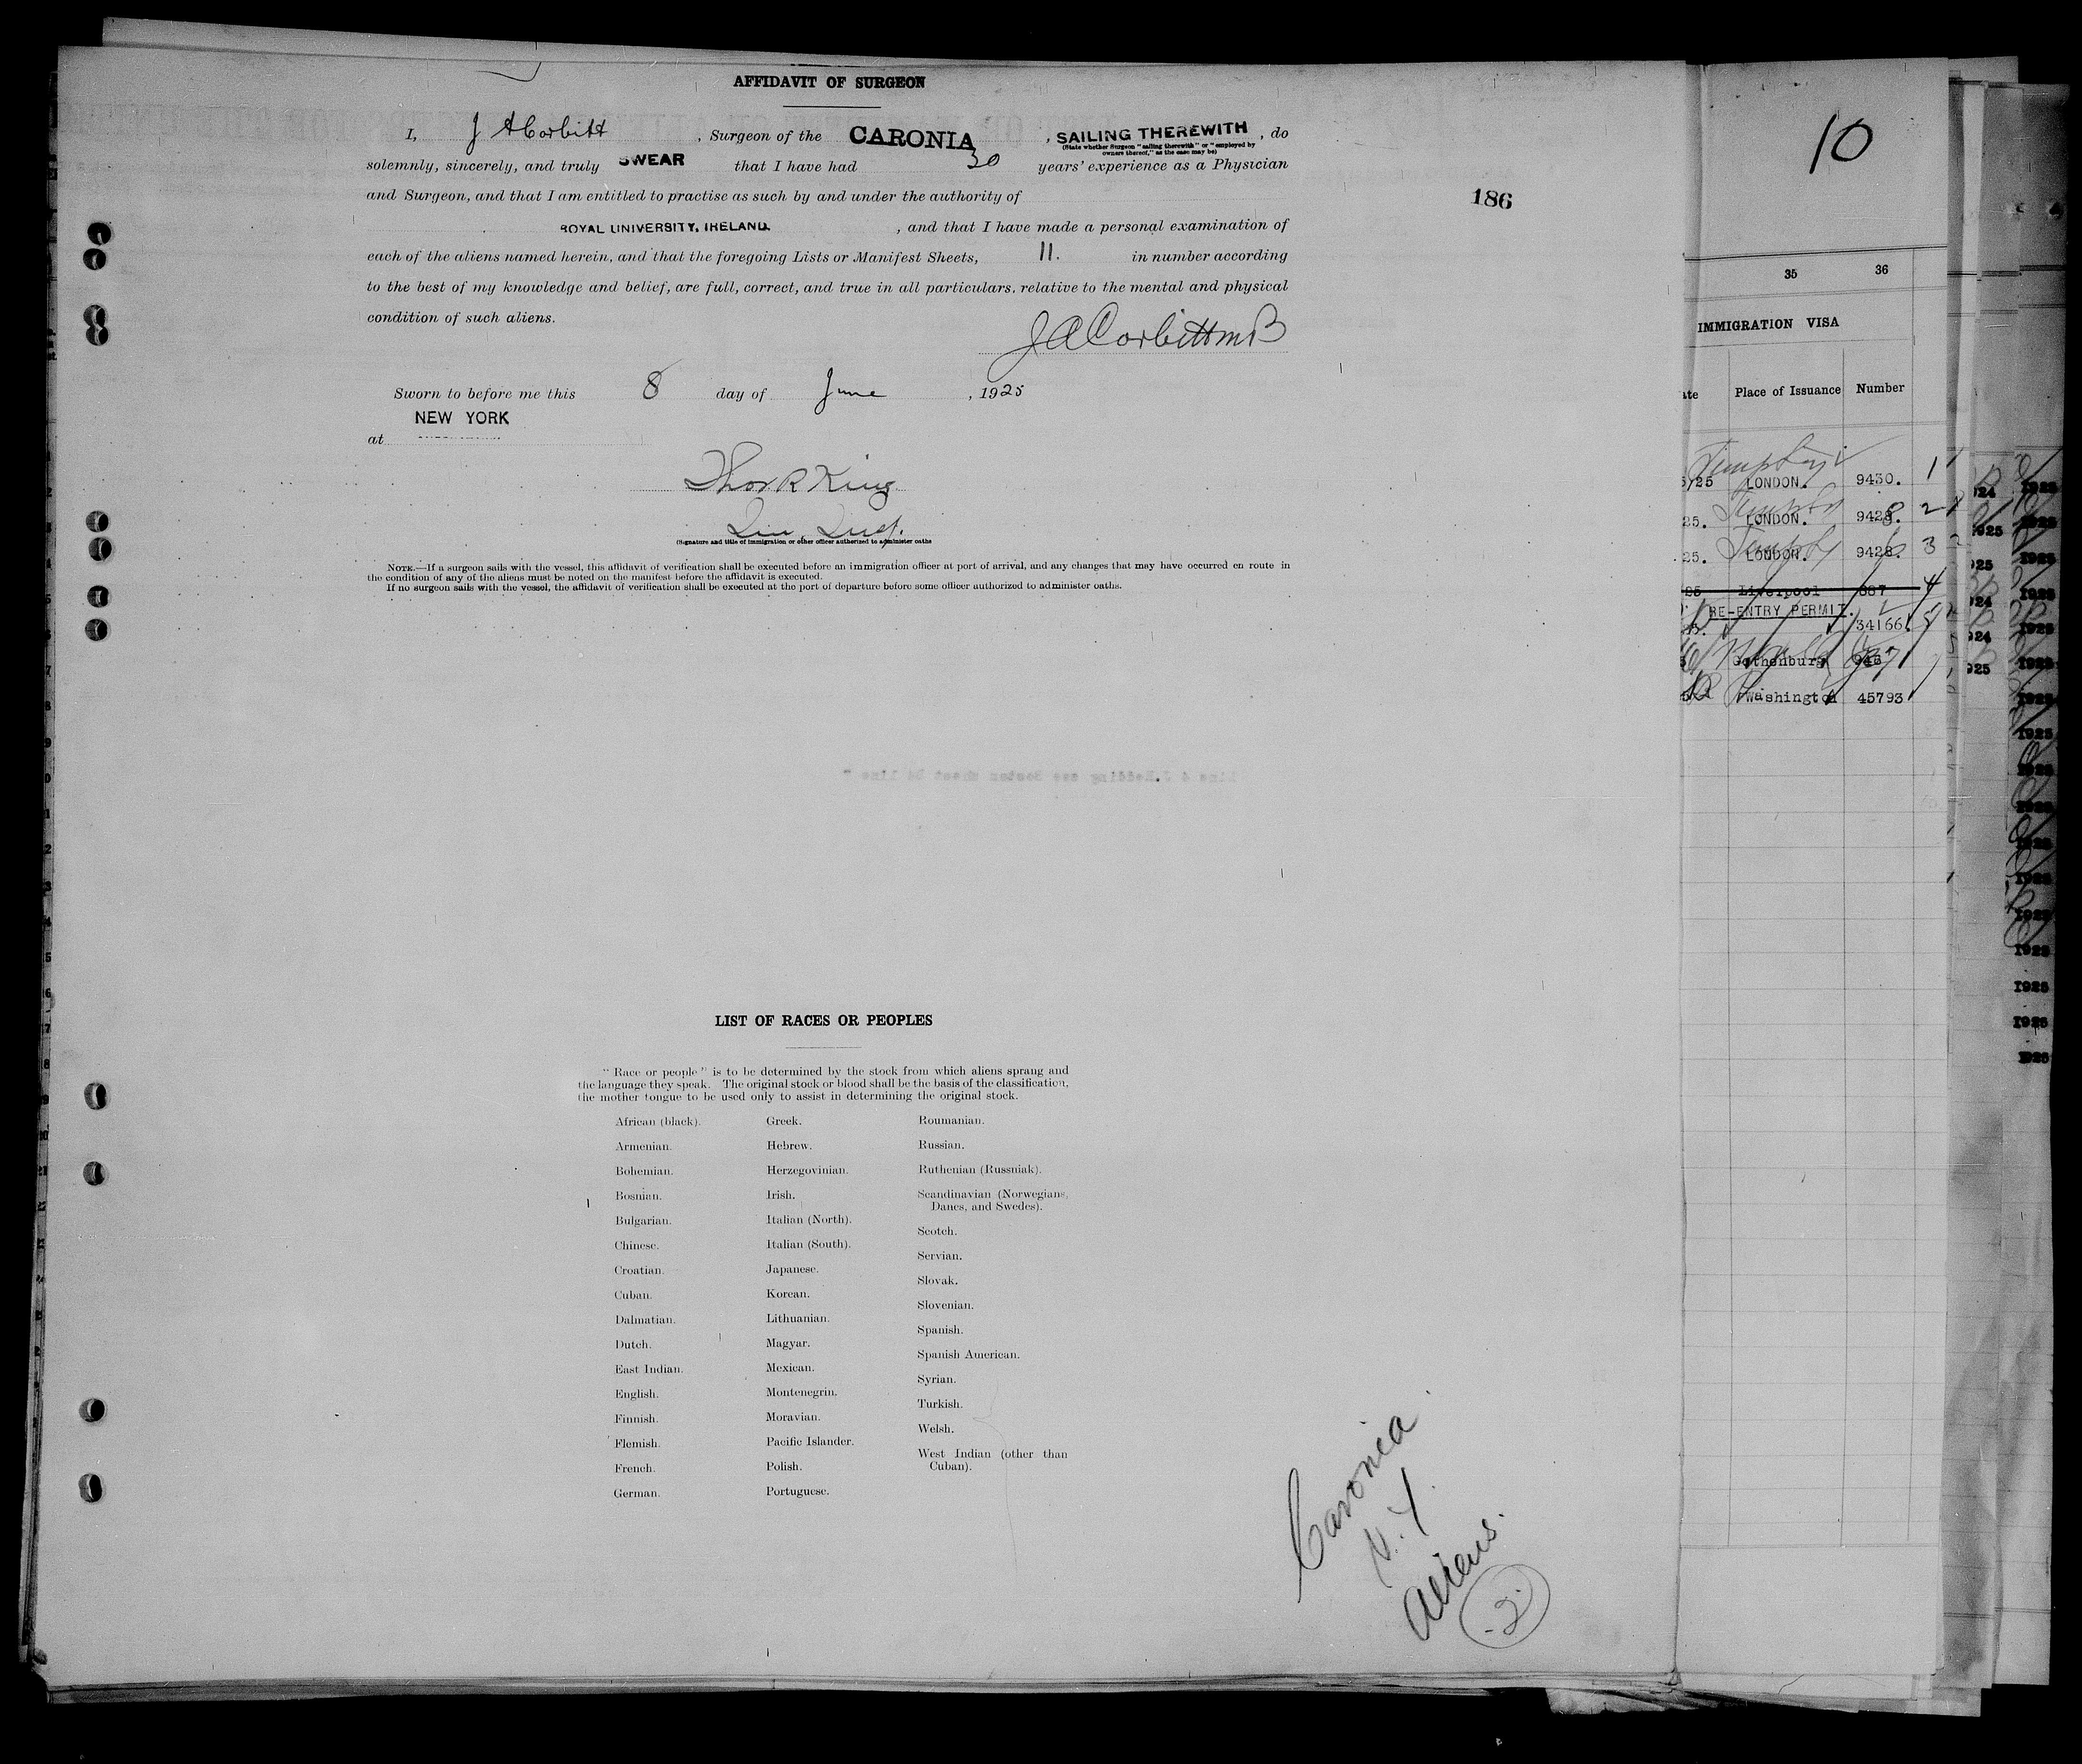 AFFIDAVIT OF SURGEON
I, J A Corbitt, Surgeon of the CARONIA, SAILING THEREWITH, do
(State whether Surgeon "sailing therewith" or "employed by
owners thereof," as the case may be)
solemnly, sincerely, and truly SWEAR that I have had 30 years' experience as a Physician
and Surgeon, and that I am entitled to practise as such by and under the authority of
ROYAL UNIVERSITY, IRELAND, and that I have made a personal examination of
each of the aliens named herein, and that the foregoing Lists or Manifest Sheets, 11. in number according
to the best of my knowledge and belief, are full, correct, and true in all particulars, relative to the mental and physical
condition of such aliens.
J A Corbitt MB
Sworn to before me this 8 day of June, 1925
NEW YORK
at
Thos R King
(Signature and title of immigration or other officer authorized to administer oaths
NOTE.—If a surgeon sails with the vessel, this affidavit of verification shall be executed before an immigration officer at port of arrival, and any changes that may have occurred en route in
the condition of any of the aliens must be noted on the manifest before the affidavit is executed.
If no surgeon sails with the vessel, the affidavit of verification shall be executed at the port of departure before some officer authorized to administer oaths.
186
LIST OF RACES OR PEOPLES
"Race or people" is to be determined by the stock from which aliens sprang and
the language they speak. The original stock or blood shall be the basis of the classification,
the mother tongue to be used only to assist in determining the original stock.
African (black).
Armenian.
Bohemian.
Bosnian.
Bulgarian.
Chinese.
Croatian.
Cuban.
Dalmatian.
Dutch.
East Indian.
English.
Finnish.
Flemish.
French.
German.
Greek.
Hebrew.
Herzegovinian.
Irish.
Italian (North).
Italian (South).
Japanese.
Korean.
Lithuanian.
Magyar.
Mexican.
Montenegrin.
Moravian.
Pacific Islander.
Polish.
Portuguese.
Roumanian.
Russian.
Ruthenian (Russniak).
Scandinavian (Norwegians,
Danes, and Swedes).
Scotch.
Servian.
Slovak.
Slovenian.
Spanish.
Spanish American.
Syrian.
Turkish.
Welsh.
West Indian (other than
Cuban).
Caronia
N.Y.
Aliens.
2
10
35 36
IMMIGRATION VISA
Place of Issuance Number
LONDON. 9430. 1
LONDON. 2
LONDON. 9428. 3
Liverpool 887 4
RE-ENTRY PERMIT.
34166.
Gothenburg
Washington 45793